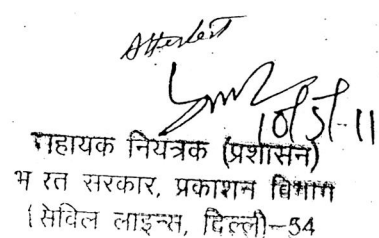 Attested
10/5/-11
सहायक नियंत्रक (प्रशासन)
भ रत सरकार, प्रकाशन विभाग
(सिविल लाइन्स, दिल्ली-54